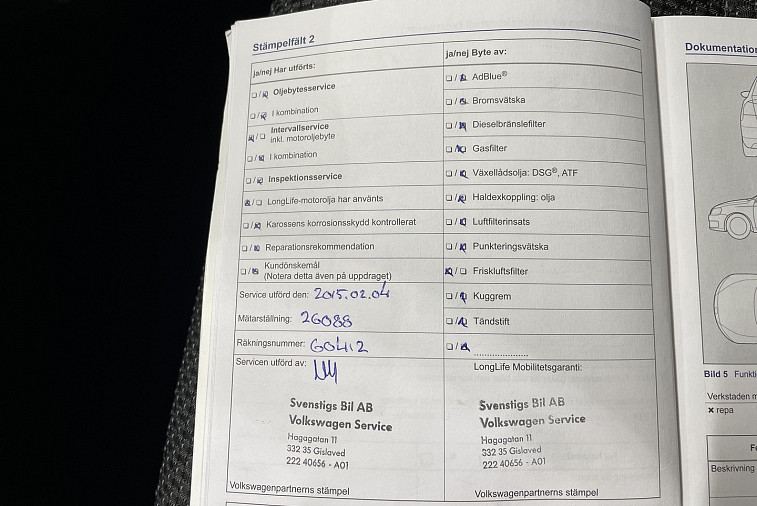 Stämpelfält 2
ja/nej Har utförts:
Oljebytesservice
I kombination
Intervallservice
inkl. motoroljebyte
I kombination
Inspektionsservice
LongLife-motorolja har använts
Karossens korrosionsskydd kontrollerat
Reparationsrekommendation
Kundönskemål
(Notera detta även på uppdraget)
Service utförd den: 2015.02.04
Mätarställning: 26088
Räkningsnummer: 60412
Servicen utförd av:
Svenstigs Bil AB
Volkswagen Service
Hagagatan 11
332 35 Gislaved
222 40656 - A01
Volkswagenpartnerns stämpel
ja/nej Byte av:
AdBlue®
Bromsvätska
Dieselbränslefilter
Gasfilter
Växellådsolja: DSG®, ATF
Haldexkoppling: olja
Luftfilterinsats
Punkteringsvätska
Friskluftsfilter
Kuggrem
Tändstift
LongLife Mobilitetsgaranti:
Svenstigs Bil AB
Volkswagen Service
Hagagatan 11
332 35 Gislaved
222 40656 - A01
Volkswagenpartnerns stämpel
Dokumentation
Bild 5 Funkti
Verkstaden m
× repa
Beskrivning